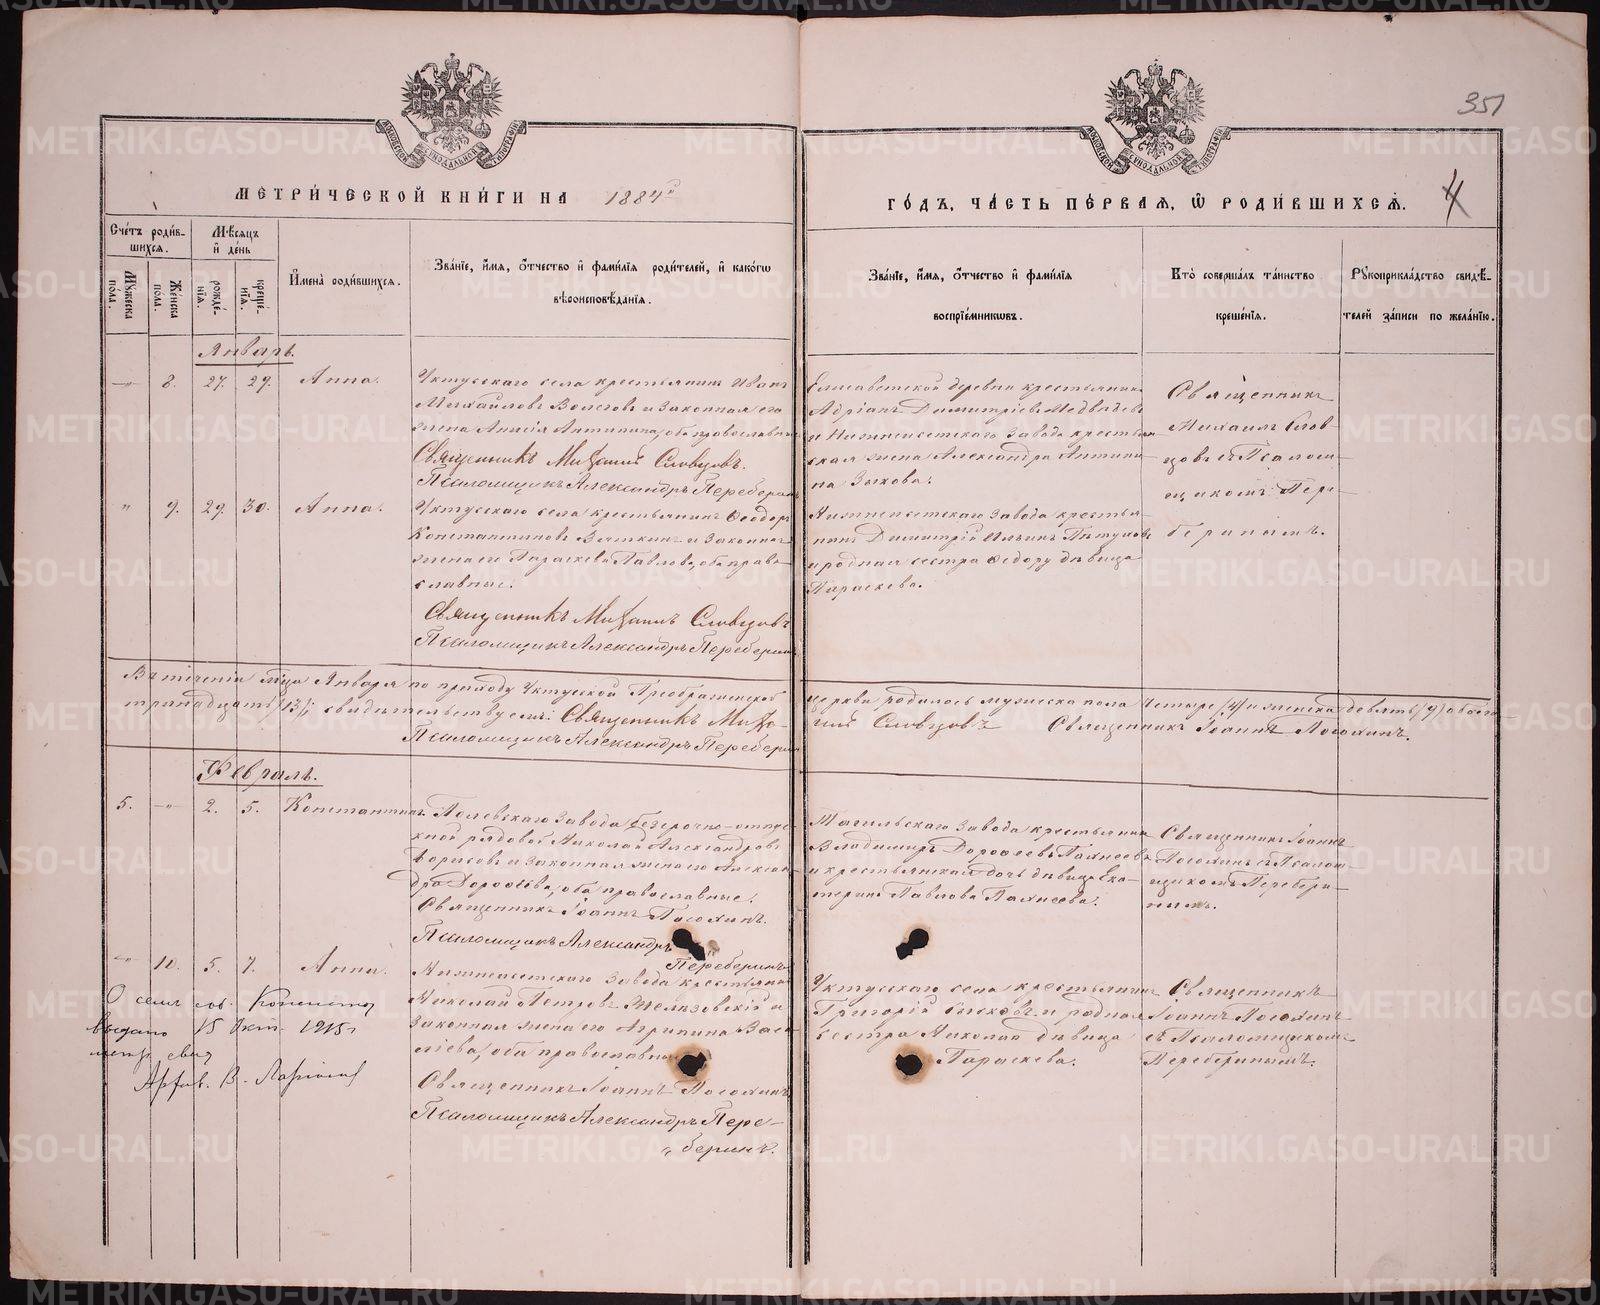 351
МОСКОВСКОЙ СѴНОДАЛЬНОЙ ТИПОГРАФІИ
МОСКОВСКОЙ СѴНОДАЛЬНОЙ ТИПОГРАФІИ
МЕТРИ́ЧЕСКОЙ КНИ́ГИ НА 1884й
ГО́ДЪ, ЧА́СТЬ ПЕ́РВАЯ, Ѽ РОДИ́ВШИХСЯ. 4
Сче́тъ роди́в-
шихся.
Мѣ́сяцъ
и҆ де́нь
Мꙋ́жеска
по́ла.
Же́нска
по́ла.
рожде́-
нїя.
креще́-
нїя.
И҆мена̀ роди́вшихся.
Зва́нїе, и҆́мя, о҆́тчество и҆ фами́лїя роди́телей, и҆ како́гѡ
вѣроисповѣ́данїя.
Зва́нїе, и҆́мя, о҆́тчество и҆ фами́лїя
воспрїе́мникѡвъ.
Кто̀ соверша́лъ та́инство
креще́нїя.
Рꙋкоприкла́дство свидѣ́-
телей за́писи по жела́нїю.
Январь.
—„— 8. 27. 29. Анна.
Уктусскаго села крестьянинъ Иванъ
Михайловъ и законная его
жена Антипина, оба православные
Священникъ Михаилъ Словцовъ.
Псаломщикъ Александръ Переберинъ
Елисаветской деревни крестьянинъ
Адріанъ Димитріевъ Медвѣдевъ
и Нижнеисетскаго завода крестьян
ская жена Александра Антипи
на Зыкова.
Священникъ
Михаилъ Слов
цовъ съ Псалом
щикомъ Пере
беринымъ.
„ 9. 29. 30. Анна.
Уктусскаго села крестьянинъ Ѳеодоръ
Константиновъ Вяткинъ и законная
жена его Параскева Павлова, оба право
славные.
Священникъ Михаилъ Словцовъ
Псаломщикъ Александръ Переберинъ
Нижнеисетскаго завода крестья-
нинъ Димитрій Ильинъ Пѣтуховъ
и родная сестра Ѳедору дѣвица
Параскева.
Въ теченіи мѣсяца Января по приходу Уктусской Преображенской церкви родилось мужеска пола четыре (4) и женска девять (9) обоего
тринадцать (13), свидѣтельствуемъ: Священникъ Михаилъ Словцовъ Священникъ Іоаннъ Посохинъ.
Псаломщикъ Александръ Переберинъ
Февраль.
5. —„— 2. 5. Константинъ.
Полевскаго завода безсрочно-отпус-
кной рядовой Николай Александровъ
Борисовъ и законная жена его Алексан
дра Дороѳеева, оба православные.
Священникъ Іоаннъ Посохинъ.
Псаломщикъ Александръ
Переберинъ
Тагильскаго завода крестьянинъ
Владимиръ Дороѳеевъ
и крестьянская дочь дѣвица Ека-
терина Павлова
Священникъ Іоаннъ
Посохинъ съ Псалом
щикомъ Перебери-
нымъ.
—„— 10. 5. 7. Анна.
Нижнеисетскаго завода крестьянинъ
Николай Петровъ и
законная жена его Агрипина Васи
ліева, оба православные
Священникъ Іоаннъ Посохинъ
Псаломщикъ Александръ Пере-
„беринъ.
Уктусскаго села крестьянинъ
Григорій и родная
сестра Николая дѣвица
Параскева.
Священникъ
Іоаннъ Посохинъ
съ Псаломщикомъ
Переберинымъ.
О семъ
выдано 15 Окт. 1915г
METRIKI.GASO-URAL.RU